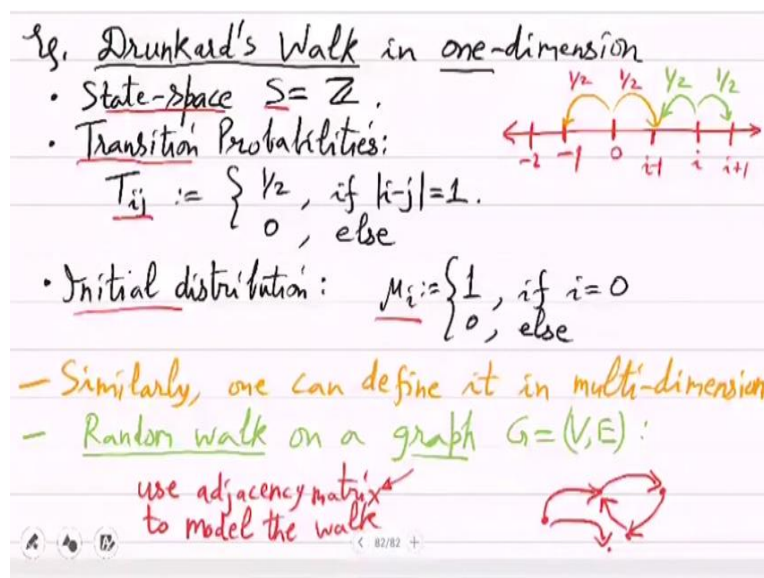 Eg. Drunkard's Walk in one-dimension
• State-space S = ℤ.
• Transition Probabilities:
T_ij := { 1/2, if |i-j|=1.
0, else
1/2 1/2 1/2 1/2
-2 -1 0 i-1 i i+1
• Initial distribution: μ_i := { 1, if i=0
0, else
- Similarly, one can define it in multi-dimension
- Random walk on a graph G=(V,E):
use adjacency matrix
to model the walk
< 82/82 +